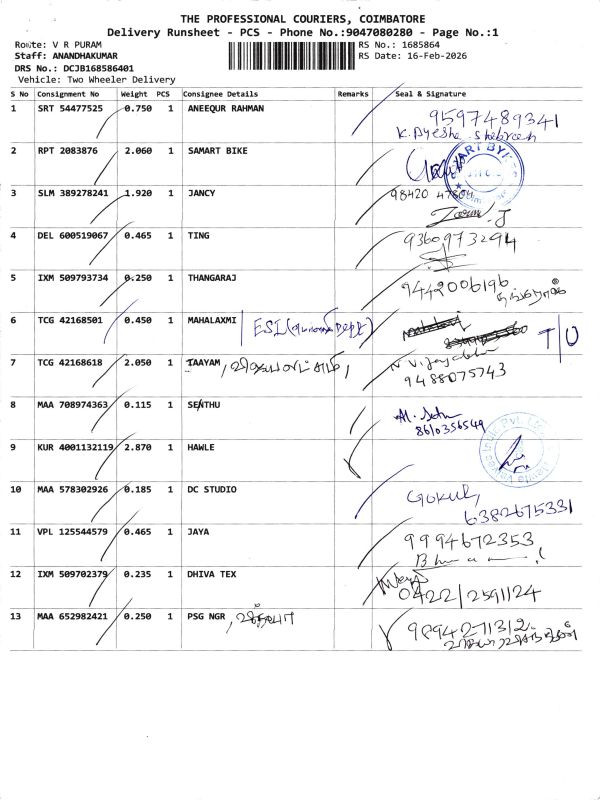 THE PROFESSIONAL COURIERS, COIMBATORE
Delivery Runsheet - PCS - Phone No.:9047080280 - Page No.:1
Route: V R PURAM
RS No.: 1685864
Staff: ANANDHAKUMAR
RS Date: 16-Feb-2026
DRS No.: DCJB168586401
Vehicle: Two Wheeler Delivery
S No Consignment No Weight PCS Consignee Details Remarks Seal & Signature
1 SRT 54477525 0.750 1 ANEEQUR RAHMAN 9597489341
K. Ayesha
2 RPT 2083876 2.060 1 SAMART BIKE
3 SLM 389278241 1.920 1 JANCY 98420
4 DEL 600519067 0.465 1 TING 9360973294
5 IXM 509793734 0.250 1 THANGARAJ 9442006196
தங்கராஜ்
6 TCG 42168501 0.450 1 MAHALAXMI ESI Dept T/O
7 TCG 42168618 2.050 1 TAAYAM,
9488075743
8 MAA 708974363 0.115 1 SENTHU
8610356549
9 KUR 4001132119 2.870 1 HAWLE
10 MAA 578302926 0.185 1 DC STUDIO Gokul
6382675331
11 VPL 125544579 0.465 1 JAYA 9994672353
12 IXM 509702379 0.235 1 DHIVA TEX
0422/2591124
13 MAA 652982421 0.250 1 PSG NGR, 9894271312